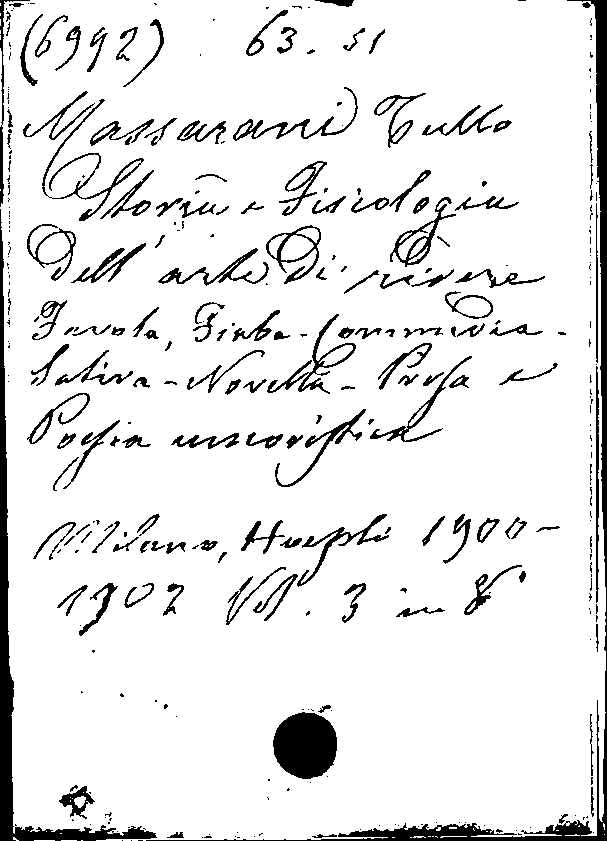 (6992) 63. 51
Massarani Tullo
Storia e Fisiologia
dell' arte Di ridere
Favola, Fiaba - Commedia -
Satira - Novella - Prosa e
Poesia umoristica
Milano, Hoepli 1900-
1902 Vol. 3 in 8°